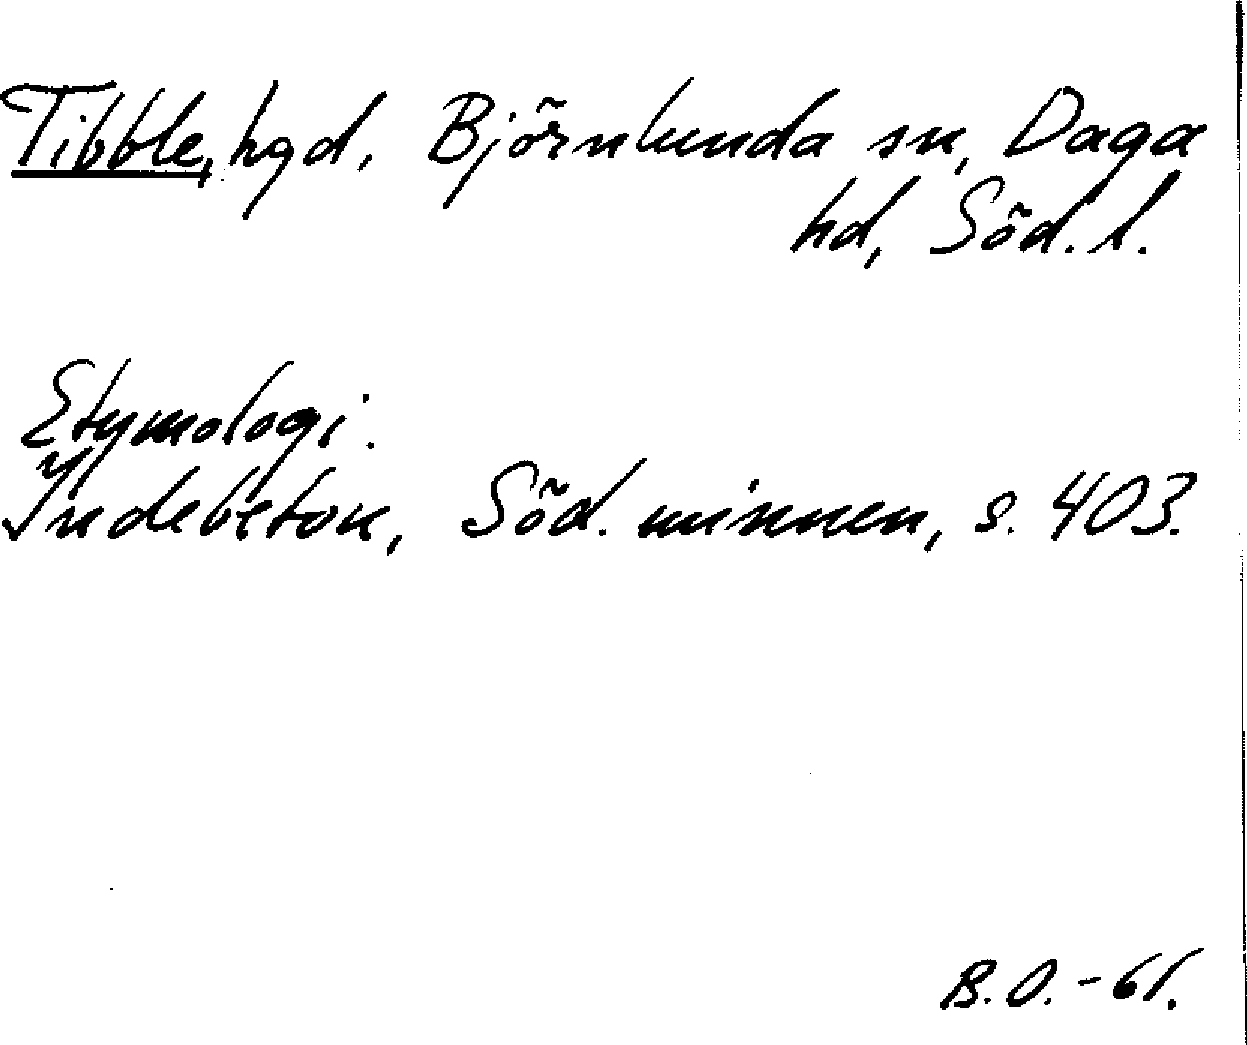 Tibble, hgd, Björnlunda sn, Daga
hd, Söd. l.
Etymologi:
Indebetou, Söd. minnen, s. 403.
B.O.-61.